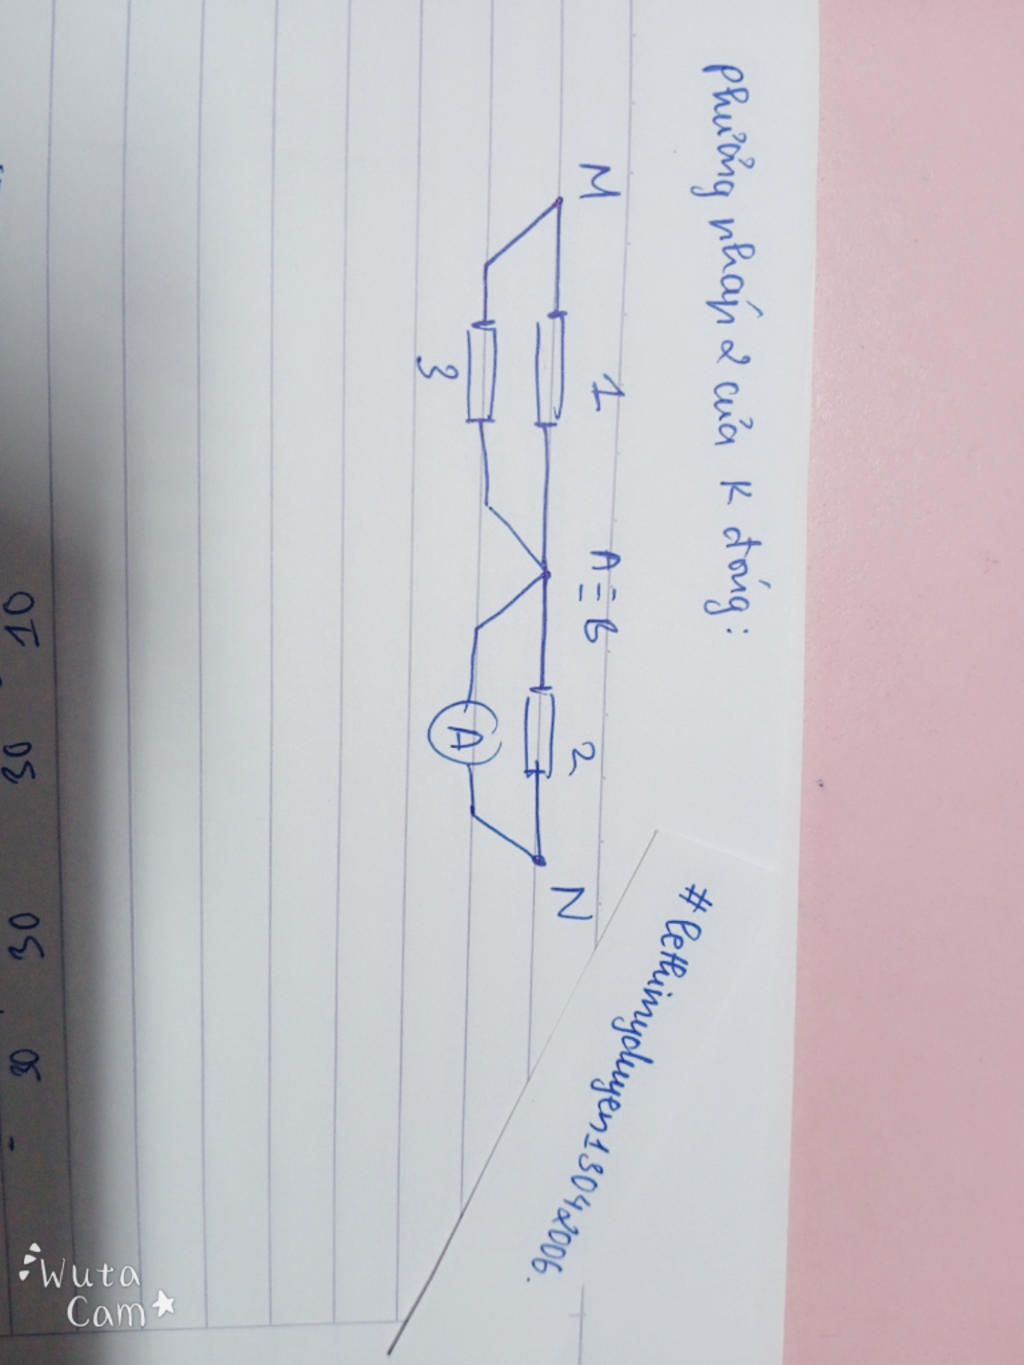 Phương pháp 2 của K đóng:
M
1
A ≡ B
2
N
3
A
#lethimyduyen13042006.
10 30 30 30 -
Wuta
Cam